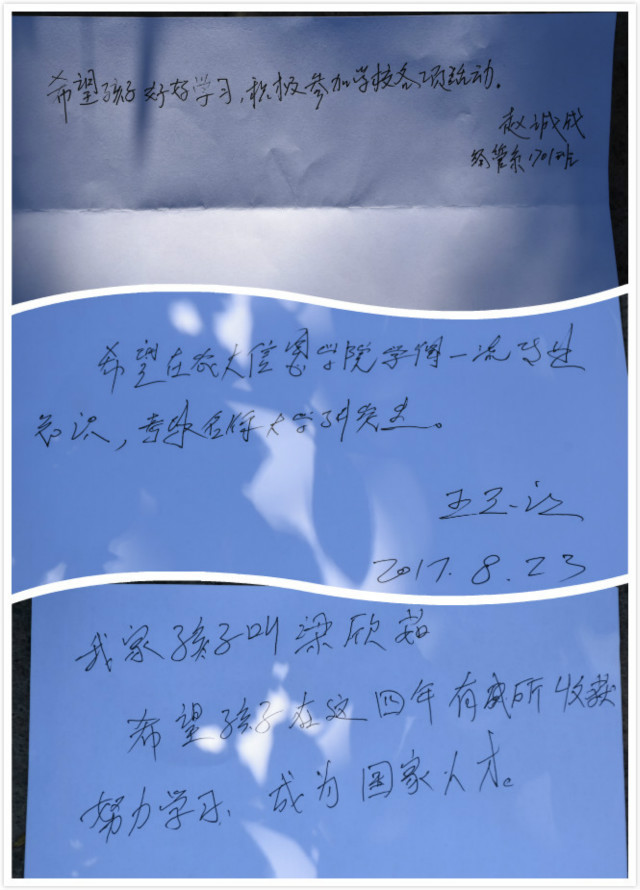 希望孩子好好学习,积极参加学校各项活动。
赵诚成
经管系1701班
希望在农大信息学院学得一流专业
知识,考取名牌大学研究生。
2017.8.23
我家孩子叫梁欣茹
希望孩子在这四年有所收获
努力学习、成为国家人才。